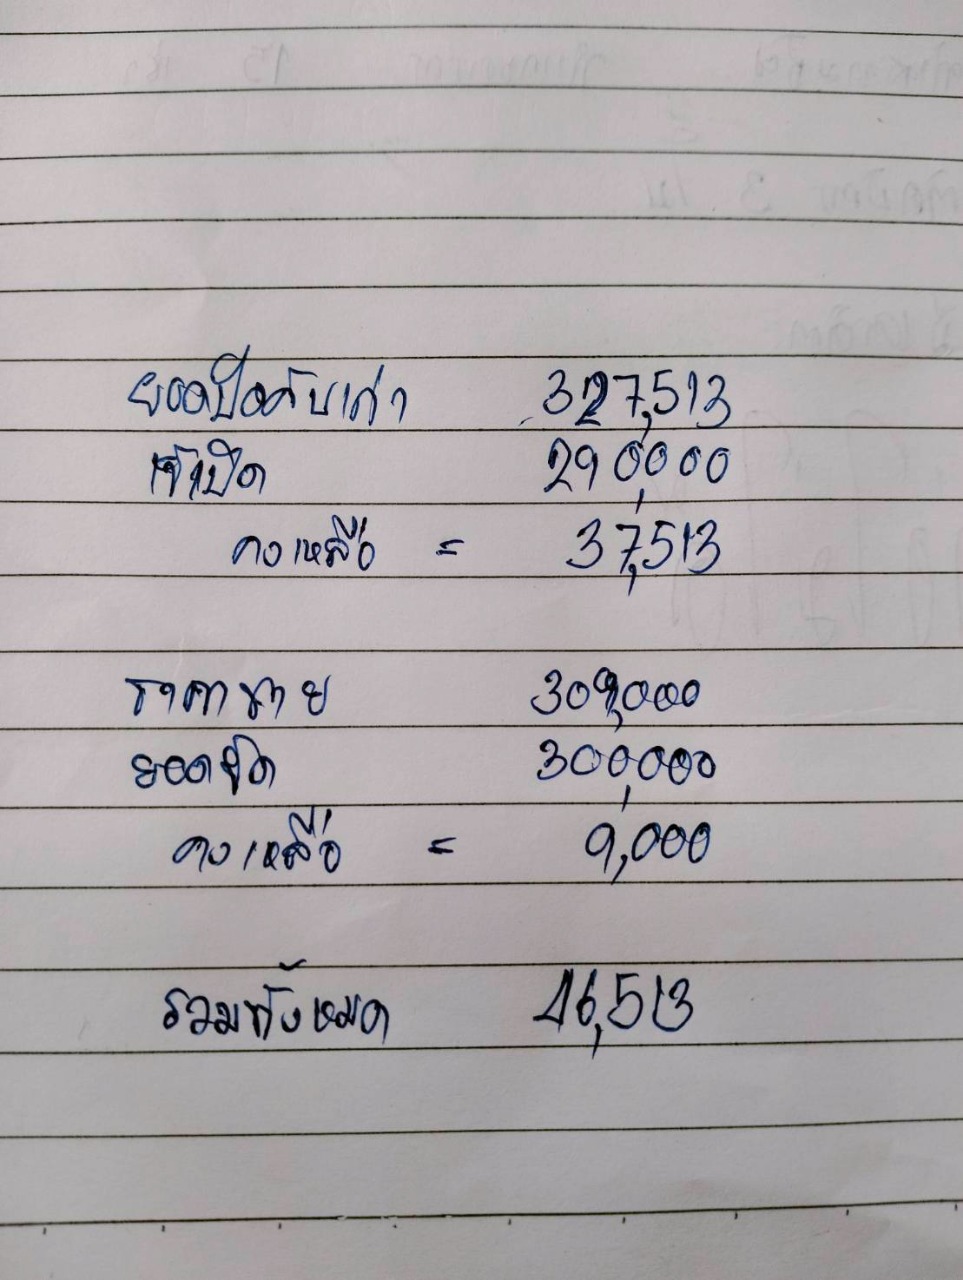 ยอดปิดคันเก่า 327,513
เจ๊เปิด 290,000
คงเหลือ = 37,513
ราคาขาย 309,000
ยอดจัด 300,000
คงเหลือ = 9,000
รวมทั้งหมด 46,513